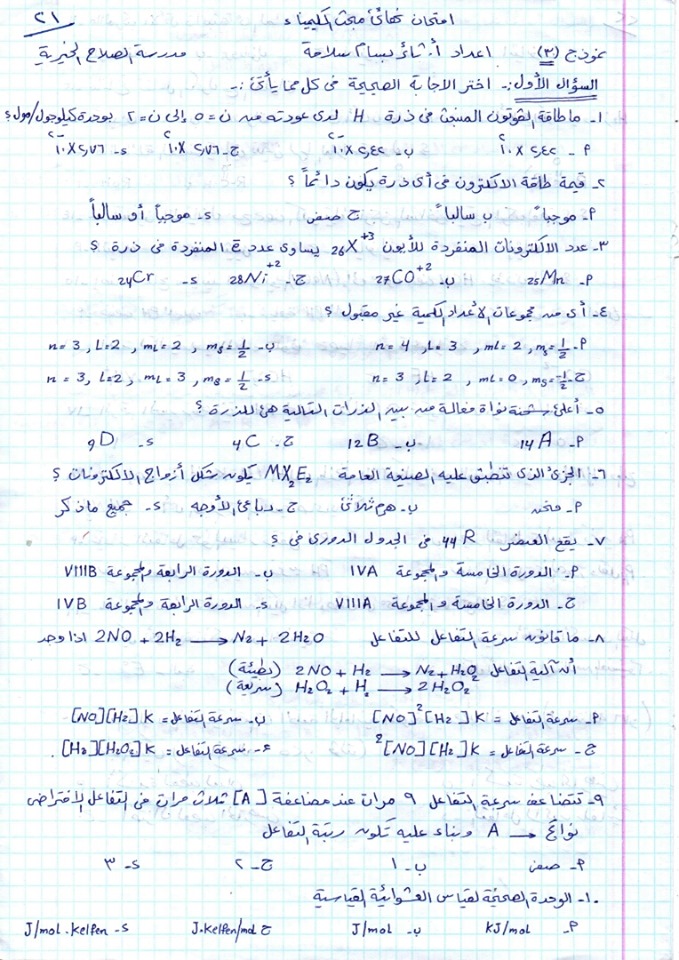 ٢١
امتحان نهائي مبحث الكيمياء
نموذج (٣) اعداد أ. ثائر بسام سلامة مدرسة الصلاح الخيرية
السؤال الأول :- اختر الاجابة الصحيحة في كل مما يأتي :-
١- ما طاقة الفوتون المنبعث في ذرة H لدى عودته من ن = ٥ إلى ن = ٢ بوحدة كيلوجول/مول ؟
٢- قيمة طاقة الالكترون في أي ذرة يكون دائماً ؟
أ. موجباً ب. سالباً ج. صفر د. موجباً أو سالباً
٣- عدد الالكترونات المنفردة للأيون ₂₆X⁺³ يساوي عدد e المنفردة في ذرة ؟
أ- ₂₅Mn ب- ₂₇CO⁺² ج- ₂₈Ni⁺² د- ₂₄Cr
٤- أي من مجموعات الأعداد الكمية غير مقبول ؟
أ- n = 4 , L = 3 , ml = 2 , ms = ½ ب- n = 3 , L = 2 , mL = 2 , ms = ½
ج- n = 3 , L = 2 , mL = 0 , ms = -½ د- n = 3 , L = 2 , mL = 3 , ms = ½
٥- أعلى شحنة نواة فعالة من بين الذرات التالية هي للذرة ؟
أ- ₁₄A ب- ₁₂B ج- ₄C د- ₉D
٦- الجزئ الذي تنطبق عليه الصيغة العامة MX₂E₂ يكون شكل أزواج الالكترونات ؟
أ- منحن ب- هرم ثلاثي ج- رباعي الأوجه د- جميع ما ذكر
٧- يقع العنصر ₄₄R في الجدول الدوري في ؟
أ- الدورة الخامسة والمجموعة IVA ب- الدورة الرابعة والمجموعة VIIIB
ج- الدورة الخامسة والمجموعة VIIIA د- الدورة الرابعة والمجموعة IVB
٨- ما قانون سرعة التفاعل للتفاعل 2NO + 2H₂ → N₂ + 2H₂O اذا وجد
أن آلية التفاعل 2NO + H₂ → N₂ + H₂O₂ (بطيئة)
H₂O₂ + H₂ → 2H₂O₂ (سريعة)
أ- سرعة التفاعل = K [H₂] ²[NO] ب- سرعة التفاعل = K [H₂] [NO]
ج- سرعة التفاعل = K [H₂] [NO]² د- سرعة التفاعل = K [H₂O₂] [H₂]
٩- تتضاعف سرعة التفاعل ٩ مرات عند مضاعفة [A] ثلاث مرات في التفاعل الافتراضي
A → نواتج وبناء عليه تكون رتبة التفاعل
أ- صفر ب- ١ ج- ٢ د- ٣
١٠- الوحدة الصحيحة لقياس العشوائية القياسية
أ- kJ/mol ب- J/mol ج J.kelfen/mol د- J/mol.kelfen